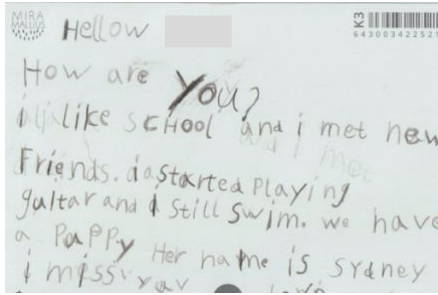 MIRA
MALLIUS
K3
Hellow
How are YOU?
i like SCHOOL and i met new
Friends. i started Playing
guitar and i Still Swim. we have
a PaPPy Her name is SYdney
i miss you